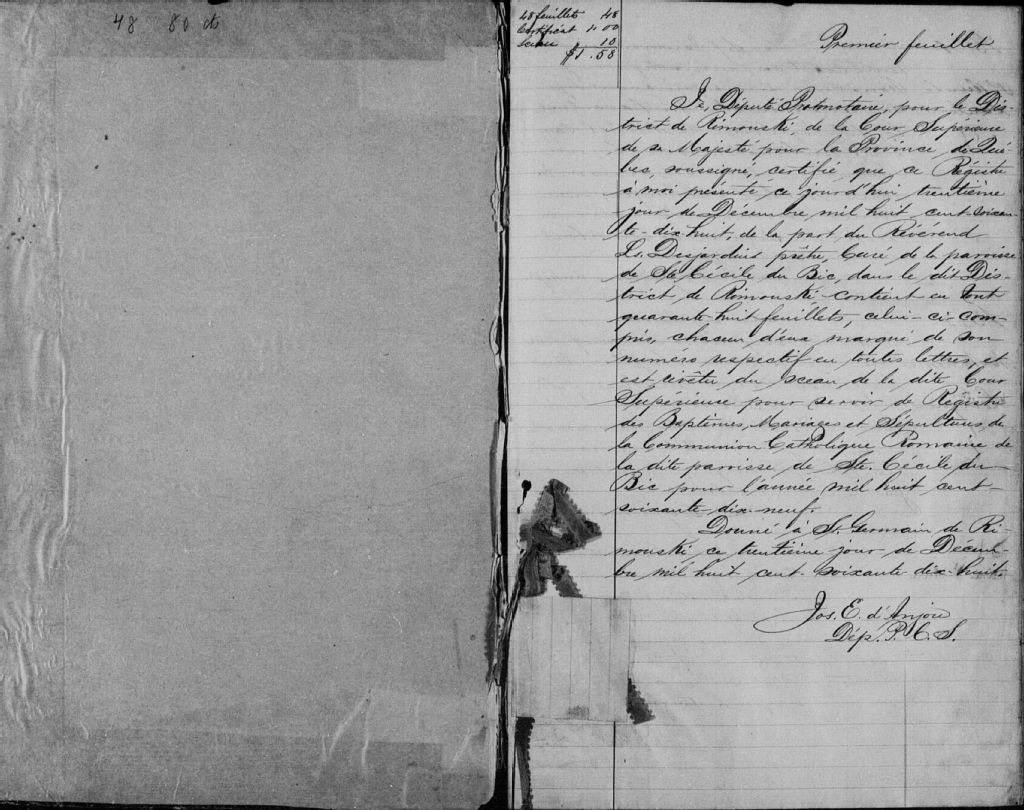 48 80 cts
48 feuillets 48
Certificat 1.00
Sceau 10
$1.58
Premier feuillet
Je, Député Protonotaire, pour le Dis-
trict de Rimouski, de la Cour Supérieure
de sa Majesté pour la Province de Qué-
bec, soussigné, certifié que ce Régistre
à moi présenté ce jourd'hui trentième
jour de Décembre mil huit cent soixan-
te-dix huit, de la part du Révérend
Ls. Desjardins prêtre, Curé de la paroisse
de Ste Cécile du Bic, dans le dit Dis-
trict de Rimouski contient en tout
quarante huit feuillets, celui-ci com-
pris, chacun d'eux marqué de son
numéro respectif en toutes lettres, et
est révêtu du sceau de la dite Cour
Supérieure pour servir de Régistre
des Baptêmes, Mariages et Sépultures, de
la Communion Catholique Romaine de
la dite paroisse de Ste. Cécile du
Bic pour l'année mil huit cent
soixante dix-neuf.
Donné à St. Germain de Ri-
mouski ce trentième jour de Décem-
bre mil huit cent soixante dix-huit.
Jos. E. d'Anjou
Dép. P. C. S.